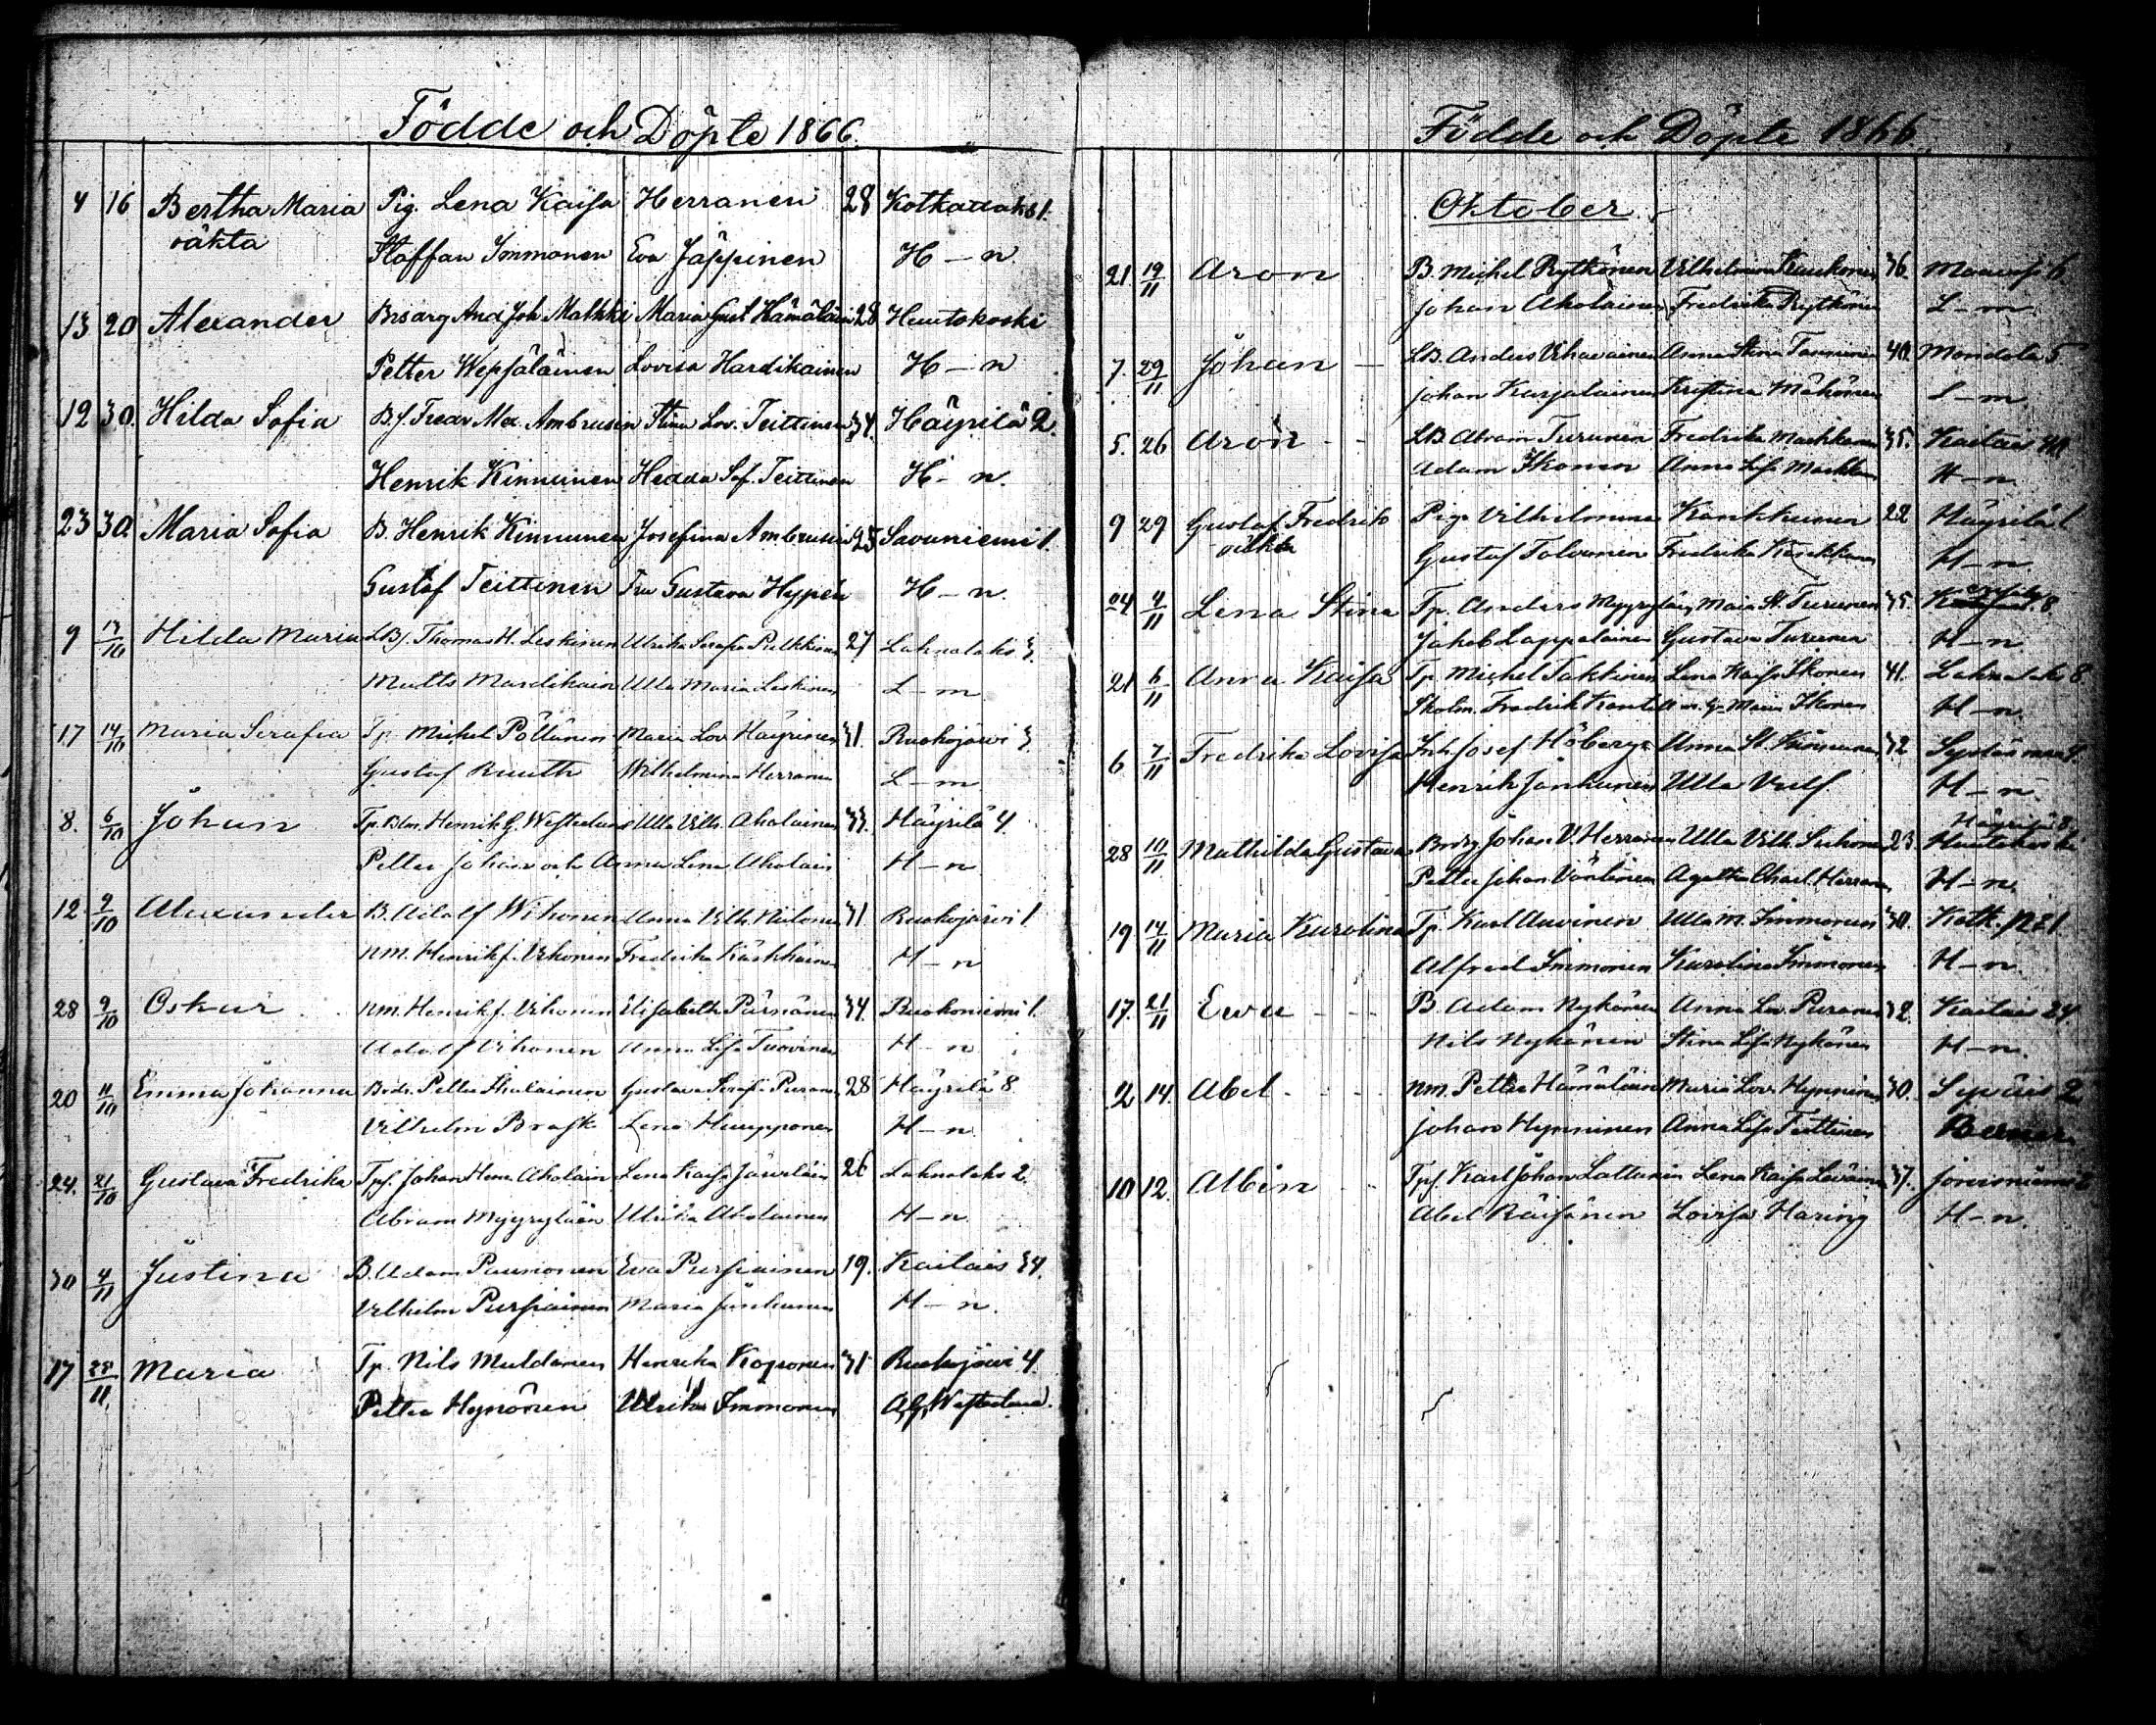 Födde och Döpte 1866.
4 16 Bertha Maria Pig. Lena Kaisa Herranen 28 Kotkatlaks 1.
oäkta Staffan Immonen Eva Jäppinen H – n
13 20 Alexander And Joh Malkki Maria Gust Hämäläin 28 Huutokoski
Petter Wepsäläinen Lovisa Hardikainen H – n
12 30. Hilda Sofia B.f. Fredr Alex. Ambrusin Stina Lov. Teittinen 34. Häyrilä 2.
Henrik Kinnunen Hedda Sof. Teittinen H – n.
23 30. Maria Sofia B. Henrik Kinnunen Josefina Ambrusin 25 Savuniemi 1.
Gustaf Teittinen Fru Gustava Hyppén H – n.
9 13/10 Hilda Maria LBf. Thomas H. Leskinen Ulrika Serafia Pulkkinen 27 Lahnalaks 3.
Matts Mardikain Ulla Maria Leskinen L – m
17 14/10 Maria Serafia Tp. Michel Pöllänen Maria Lov Häyrinen 31. Ruokojärvi 3
Gustaf Ruuth Wilhelmina Herranen L – m
8. 6/10 Johan Tp. Henrik G. Westerlund Ulla Vilh. Aholainen 33. Häyrilä 4
Petter Johan och Anna Lena Aholain H – n
12. 9/10 Alexander B. Adolf Wihonen Anna Vilh. 31 Ruokojärvi 1
Nm. Henrik J. Vihonen Fredrika H – n
28 9/10 Oskar Nm. Henrik J. Vihonen Elisabeth Pärnänen 34. Ruokoniemi 1.
Adolf Vihonen Anna Lisa Tuovinen H – n
20 11/10 Emma Johanna Petter Gustava Seraf. Puranen 28 Häyrilä 8.
Vilhelm Brask Lena Huupponen H – n
24. 21/10 Gustava Fredrika Tpf. Johan Henr. Aholain Lena Kaisa 26 Lahnalaks 2
Abram Myyryläin Ulrika Aholainen H – n
30 4/11 Justina B. Adam Paunonen Eva Pursiainen 19. Kaitais 34.
Vilhelm Pursiainen Maria Jänhunen H – n.
17 25/11. Maria Tp. Nils Muldanen Henrika Koponen 31 Ruokojärvi 4.
Petter Hynönen Ulrika Immonen A.G. Westerlund.
Födde och Döpte 1866.
Oktober.
21. 19/11 Aron B. Michel Rytkönen Vilhelmina 36.
Johan Aholainen Fredrika Rytkönen L – m.
7. 29/11 Johan – LB. Anders Vihavainen Anna Stina 40. Mondola 5
Johan Karjalainen Kristina Mähönen L – m.
5. 26 Aron - - LB. Abram Turunen Fredrika 35. Kaitais
Adam Ikonen Anna Lisa H – n
9 29 Gustaf Fredrik Pig. Vilhelmina 22 Häyrilä 1
oäkta Gustaf Tolvanen Fredrika H – n.
24 4/11 Lena Stina Tp. Anders Myyryläin Maria St. Turunen 35.
Jakob Lappalainen Gustava Turunen H – n
21 6/11 Anna Kaisa Tp. Michel Lena Kaisa Ikonen 41. Lahnalaks 8.
Fredrik Maria Ikonen H – n.
6 7/11 Fredrika Lovisa Inh. Josef Höberg Anna St. 32
Henrik Jänhunen Ulla Vulf H – n.
28 10/11 Mathilda Gustava Johan V. Herranen Ulla Vilh. 23. Häyrilä 8
Petter Johan Agatha Charl. Herranen H – n.
19 14/11 Maria Karolina Tp. Karl Auvinen Ulla M. Immonen 30. Kotk.
Alfred Immonen Karolina Immonen H – n.
17. 21/11 Eva - - - B. Adam Nykänen Anna Lov. Puranen 32. Kaitais 24.
Nils Nykänen Stina Lisa Nykänen H – n.
2 14. Abel - - - Nm. Petter Hämäläin Maria Lov. Hynninen 30.
Johan Hynninen Anna Lisa Teittinen
10 12. Albin - - Tpf. Karl Johan Lena Kaisa 37. Joroisniemi
Abel Räisänen Lovisa Häring H – n.